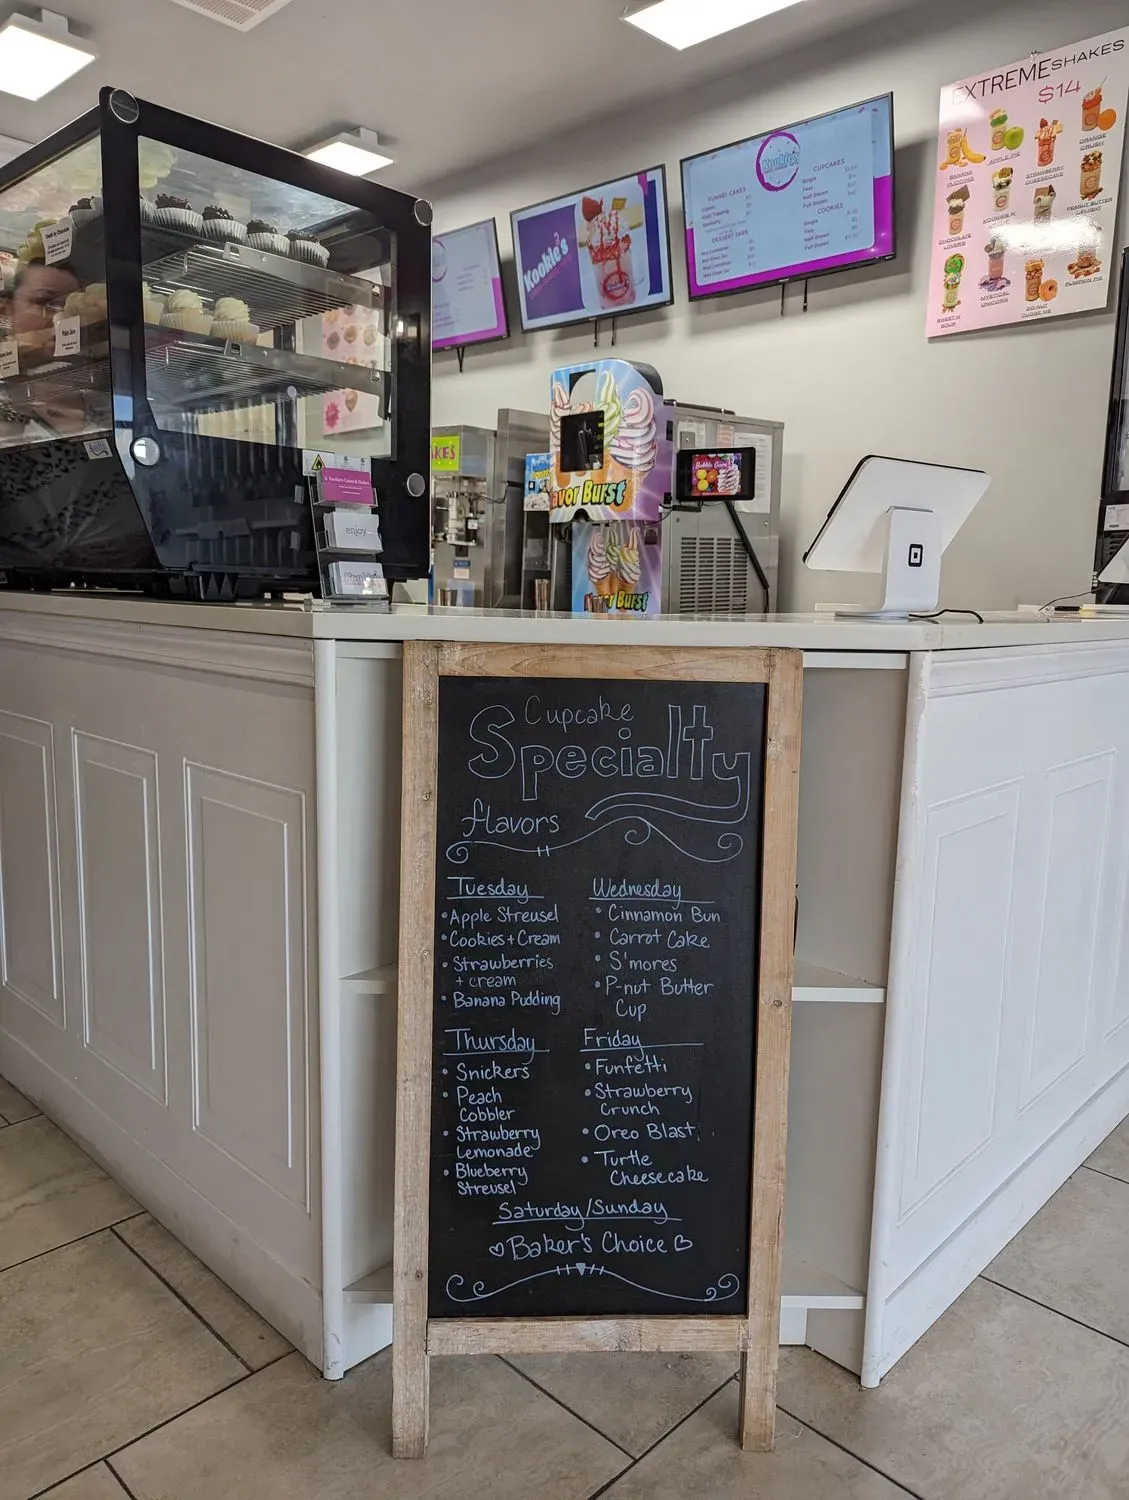 EXTREME SHAKES
$14
BANANA
PUDDING
APPLE PIE
STRAWBERRY
CHEESECAKE
ORANGE
CRUSH
CHOCOLATE
LOVERS
KOOKIES N
PEANUT BUTTER
DELIGHT
SWEET N
SOUR
MYSTICAL
UNICORN
DO-NUT
JUDGE ME
PUMPKIN PIE
Kookie's
FUNNEL CAKES
DESSERT BARS
CUPCAKES
Single
Four
Half Dozen
Full Dozen
COOKIES
Single
Half Dozen
Full Dozen
Kookie's
KES
avor Burst
Bubble Gum
Burst
enjoy
Cupcake
Specialty
flavors
Tuesday
• Apple Streusel
• Cookies + Cream
• Strawberries
+ cream
• Banana Pudding
Wednesday
• Cinnamon Bun
• Carrot Cake
• S'mores
• P-nut Butter
Cup
Thursday
• Snickers
• Peach
Cobbler
• Strawberry
Lemonade
• Blueberry
Streusel
Friday
• Funfetti
• Strawberry
Crunch
• Oreo Blast
• Turtle
Cheesecake
Saturday/Sunday
♡ Baker's Choice ♡